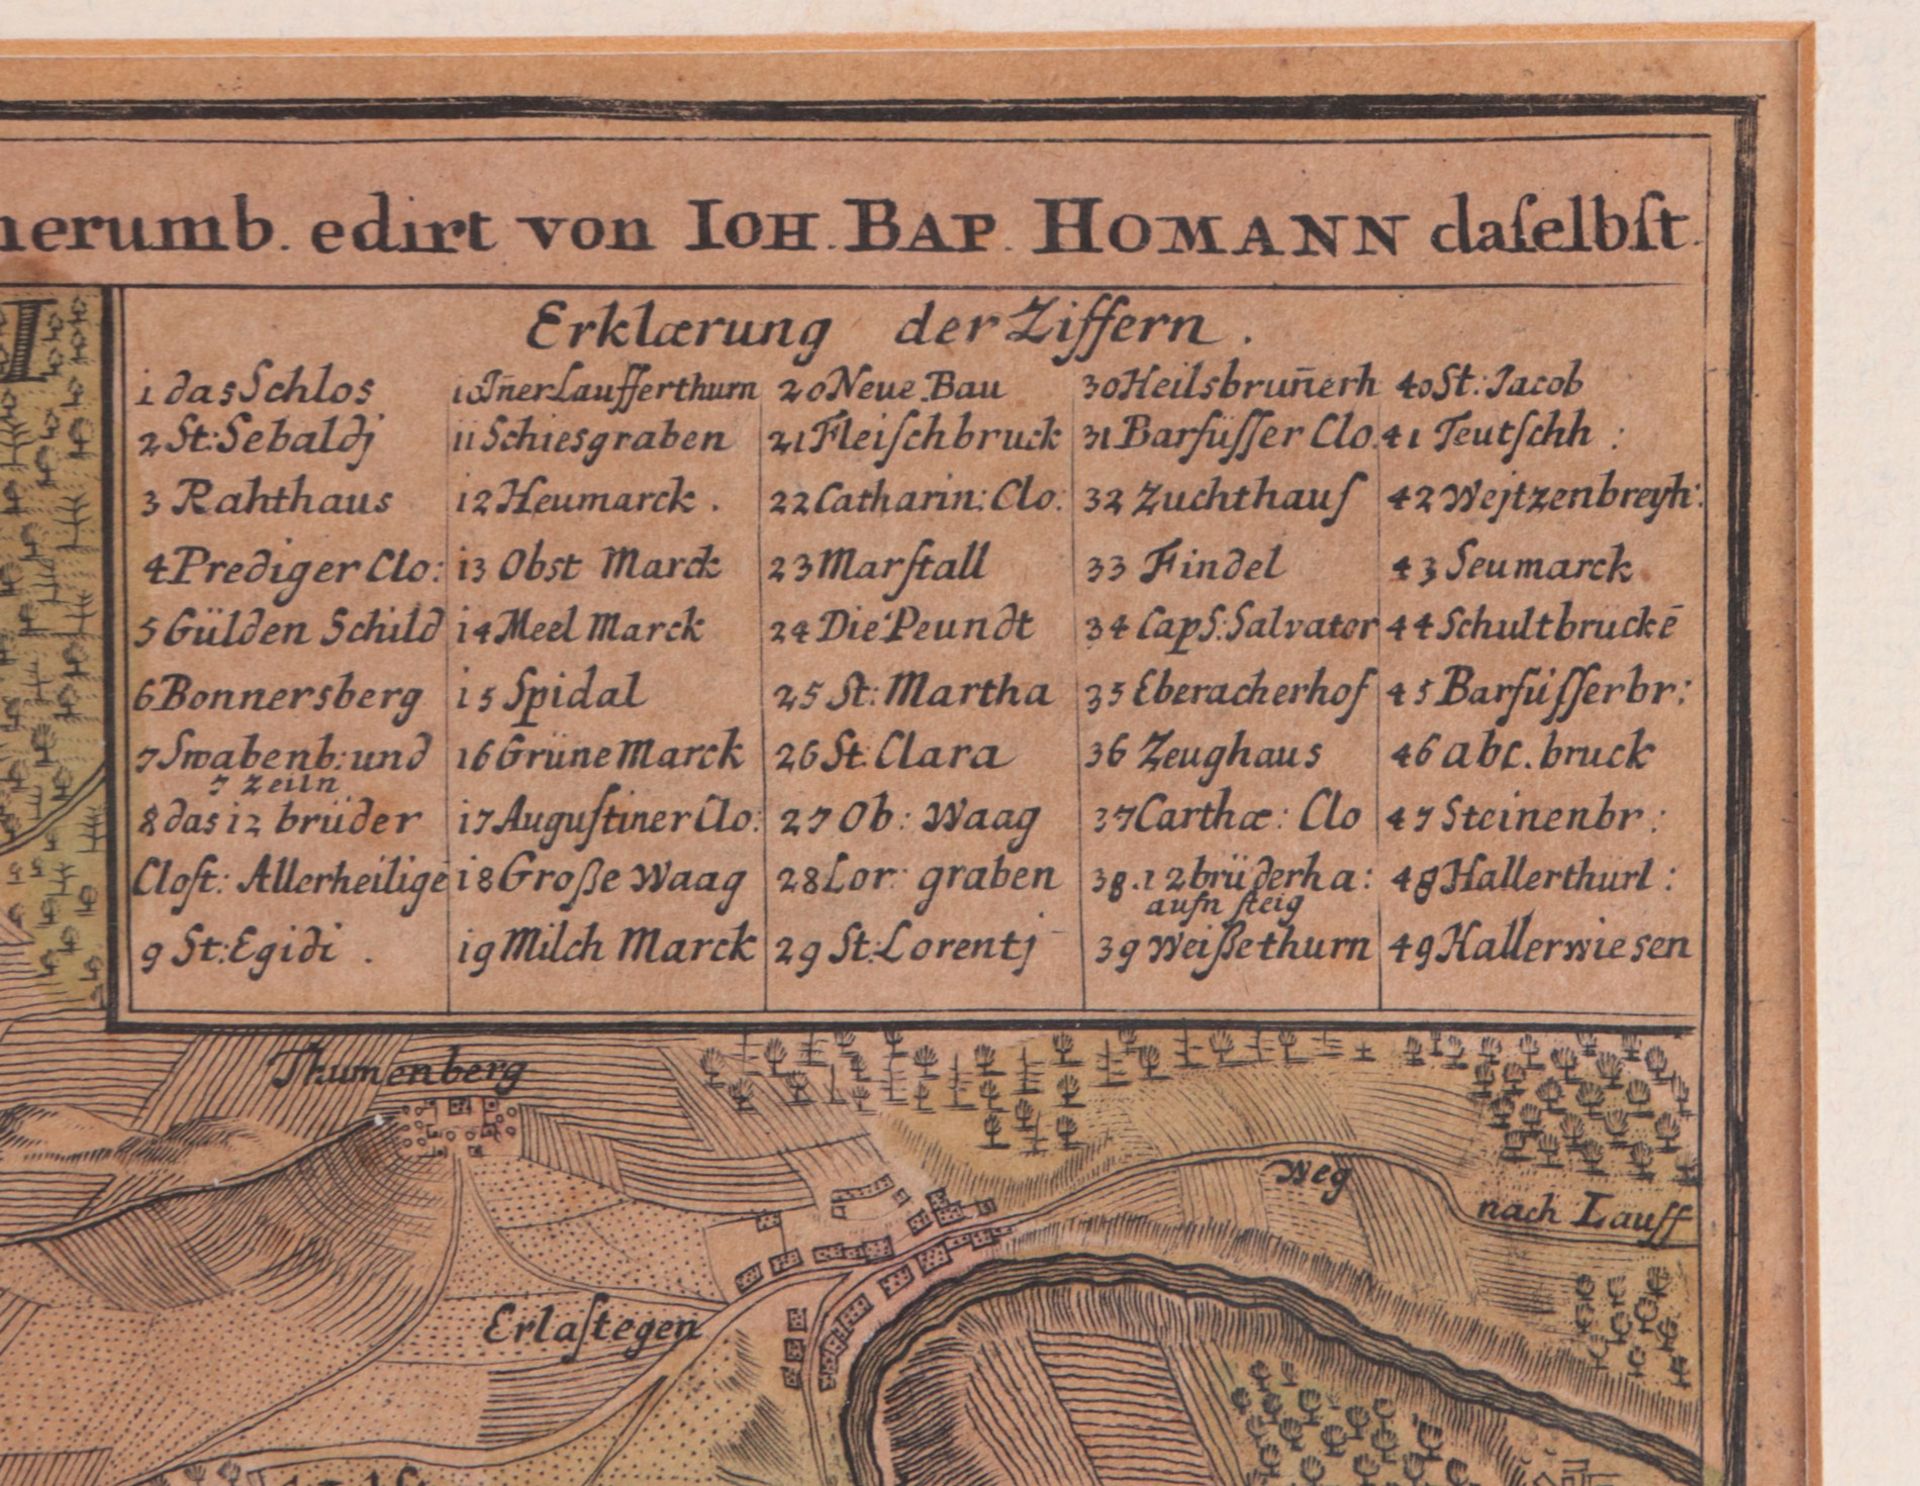 nerumb. edirt von IOH. BAP. HOMANN daſelbſt.
Erklærung der Ziffern.
1 das Schlos
2 St: Sebaldj
3 Rahthaus
4 Prediger Clo:
5 Gülden Schild
6 Bonnersberg
7 Swabenb: und
7 Zeiln
8 das 12 brüder
Cloſt: Allerheiligē
9 St: Egidi .
10 Iñer Laufferthurn
11 Schiesgraben
12 Heumarck .
13 Obst Marck
14 Meel Marck
15 Spidal
16 Grüne Marck
17 Auguſtiner Clo:
18 Große Waag
19 Milch Marck
20 Neue Bau
21 Fleiſchbruck
22 Catharin: Clo:
23 Marſtall
24 Die Peundt
25 St: Martha
26 St: Clara
27 Ob: Waag
28 Lor: graben
29 St: Lorentj
30 Heilsbruñerh
31 Barfüſſer Clo.
32 Zuchthauſ
33 Findel
34 Capſ: Salvator
35 Eberacherhof
36 Zeughaus
37 Carthæ: Clo
38. 12 brüderha:
aufn ſteig
39 Weißethurn
40 St: Jacob
41 Teutſchh :
42 Wejtzenbreyh:
43 Seumarck
44 Schultbruckē
45 Barfüſſerbr:
46 abc. bruck
47 Steinenbr:
48 Hallerthürl:
49 Hallerwiesen
Thumenberg
Weg
nach Lauff
Erlaſtegen